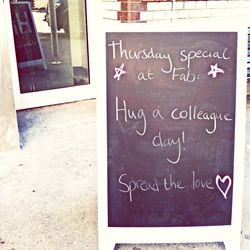 Thursday special
at Fab:
Hug a colleague
day!
Spread the love